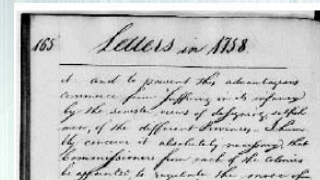 165 Letters in 1758.
it. and to prevent this advantageous
commerce from suffering in its infancy
by the sinister views of designing, selfish
men, of the different Provinces - I humb
ly conceive it absolutely necessary that
Commissioners from each of the Colonies
be appointed to regulate the mode of